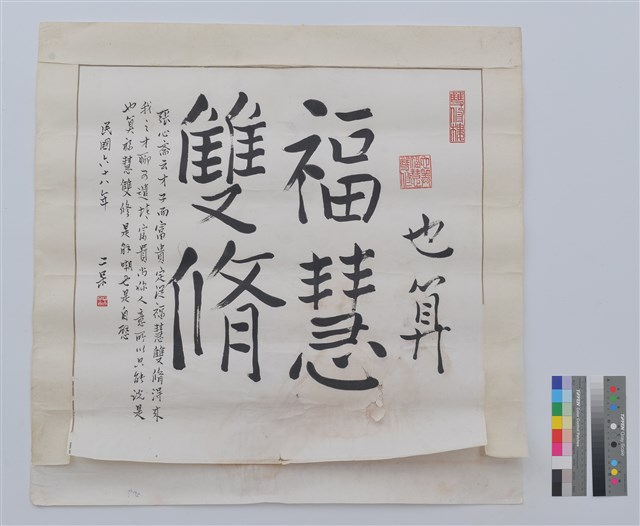 雙修樓
也算
福慧
雙脩
張心齋云才子而富貴定從福慧雙脩得來
我之才聊可遣於富貴尚你人意所以只能說是
也算福慧雙修是解嘲也是自慰
民國六十八年
二吳